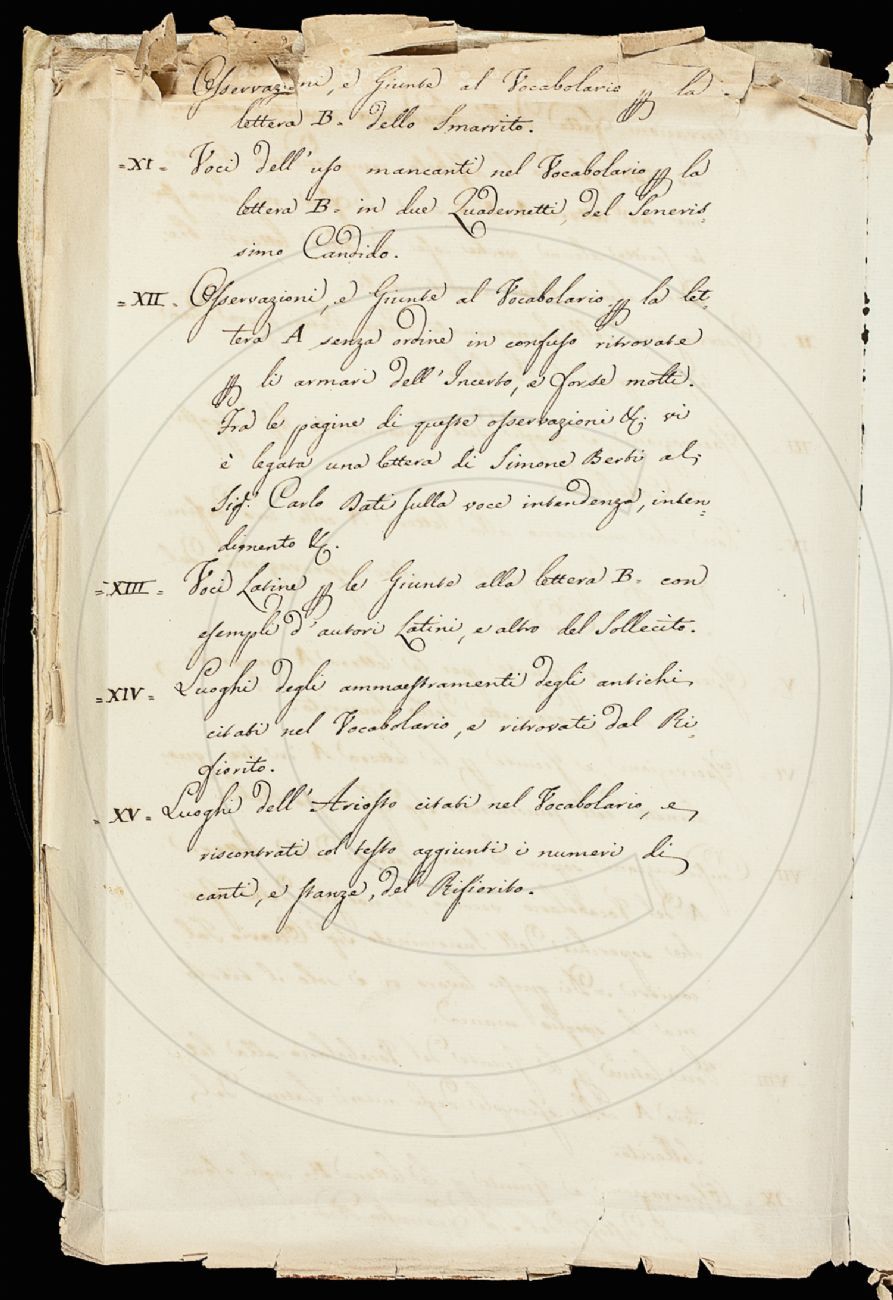 Osservazioni, e Giunte al Vocabolario p la
lettera B. dello Smarrito.
=XI= Voci dell'uso mancanti nel Vocabolario p la
lettera B. in due Quadernetti, del Seneris=
simo Candido.
=XII= Osservazioni, e Giunte al Vocabolario p la let=
tera A senza ordine in confuso ritrovate
p li armari dell'Incerto, e forse molti.
Fra le pagine di queste osservazioni &c. vi
è legata una lettera di Simone Berti al
Sigr. Carlo Dati sulla voce intendenza, inten=
dimento &c.
=XIII= Voci Latine p le Giunte alla lettera B. con
esempli d'autori Latini, e altro del Sollecito.
=XIV= Luoghi degli ammaestramenti degli antichi
citati nel Vocabolario, e ritrovati dal Ri=
fiorito.
=XV= Luoghi dell'Ariosto citati nel Vocabolario, e
riscontrati col testo aggiunti i numeri di
canti, e stanze, del Rifiorito.